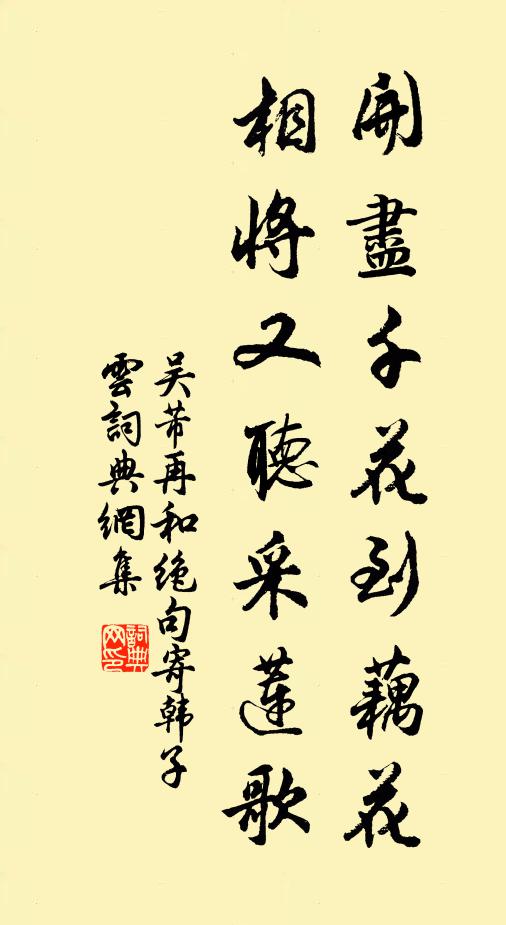 開盡千花到藕花
相將又聽采蓮歌
吴芾再和绝句寄韩子
雲詞典網集
詞典
网印